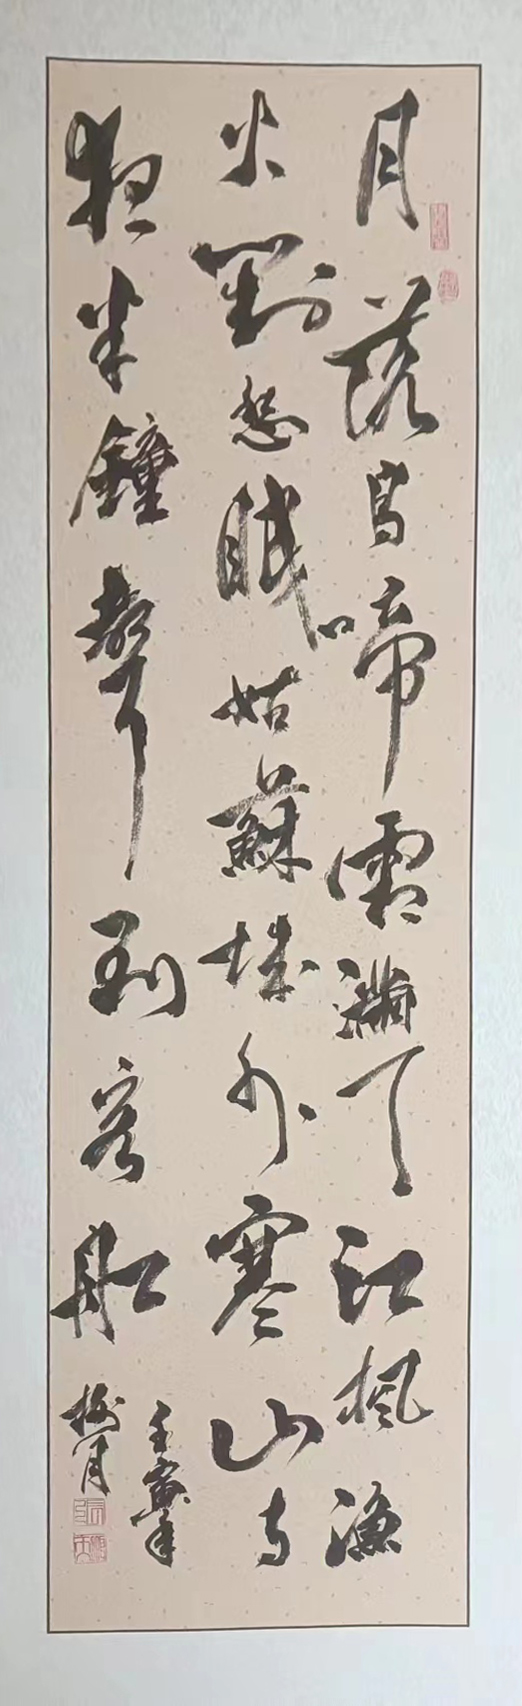 月落烏啼霜满天江楓漁
火對愁眠姑蘇城外寒山寺
夜半鐘聲到客船
壬寅年